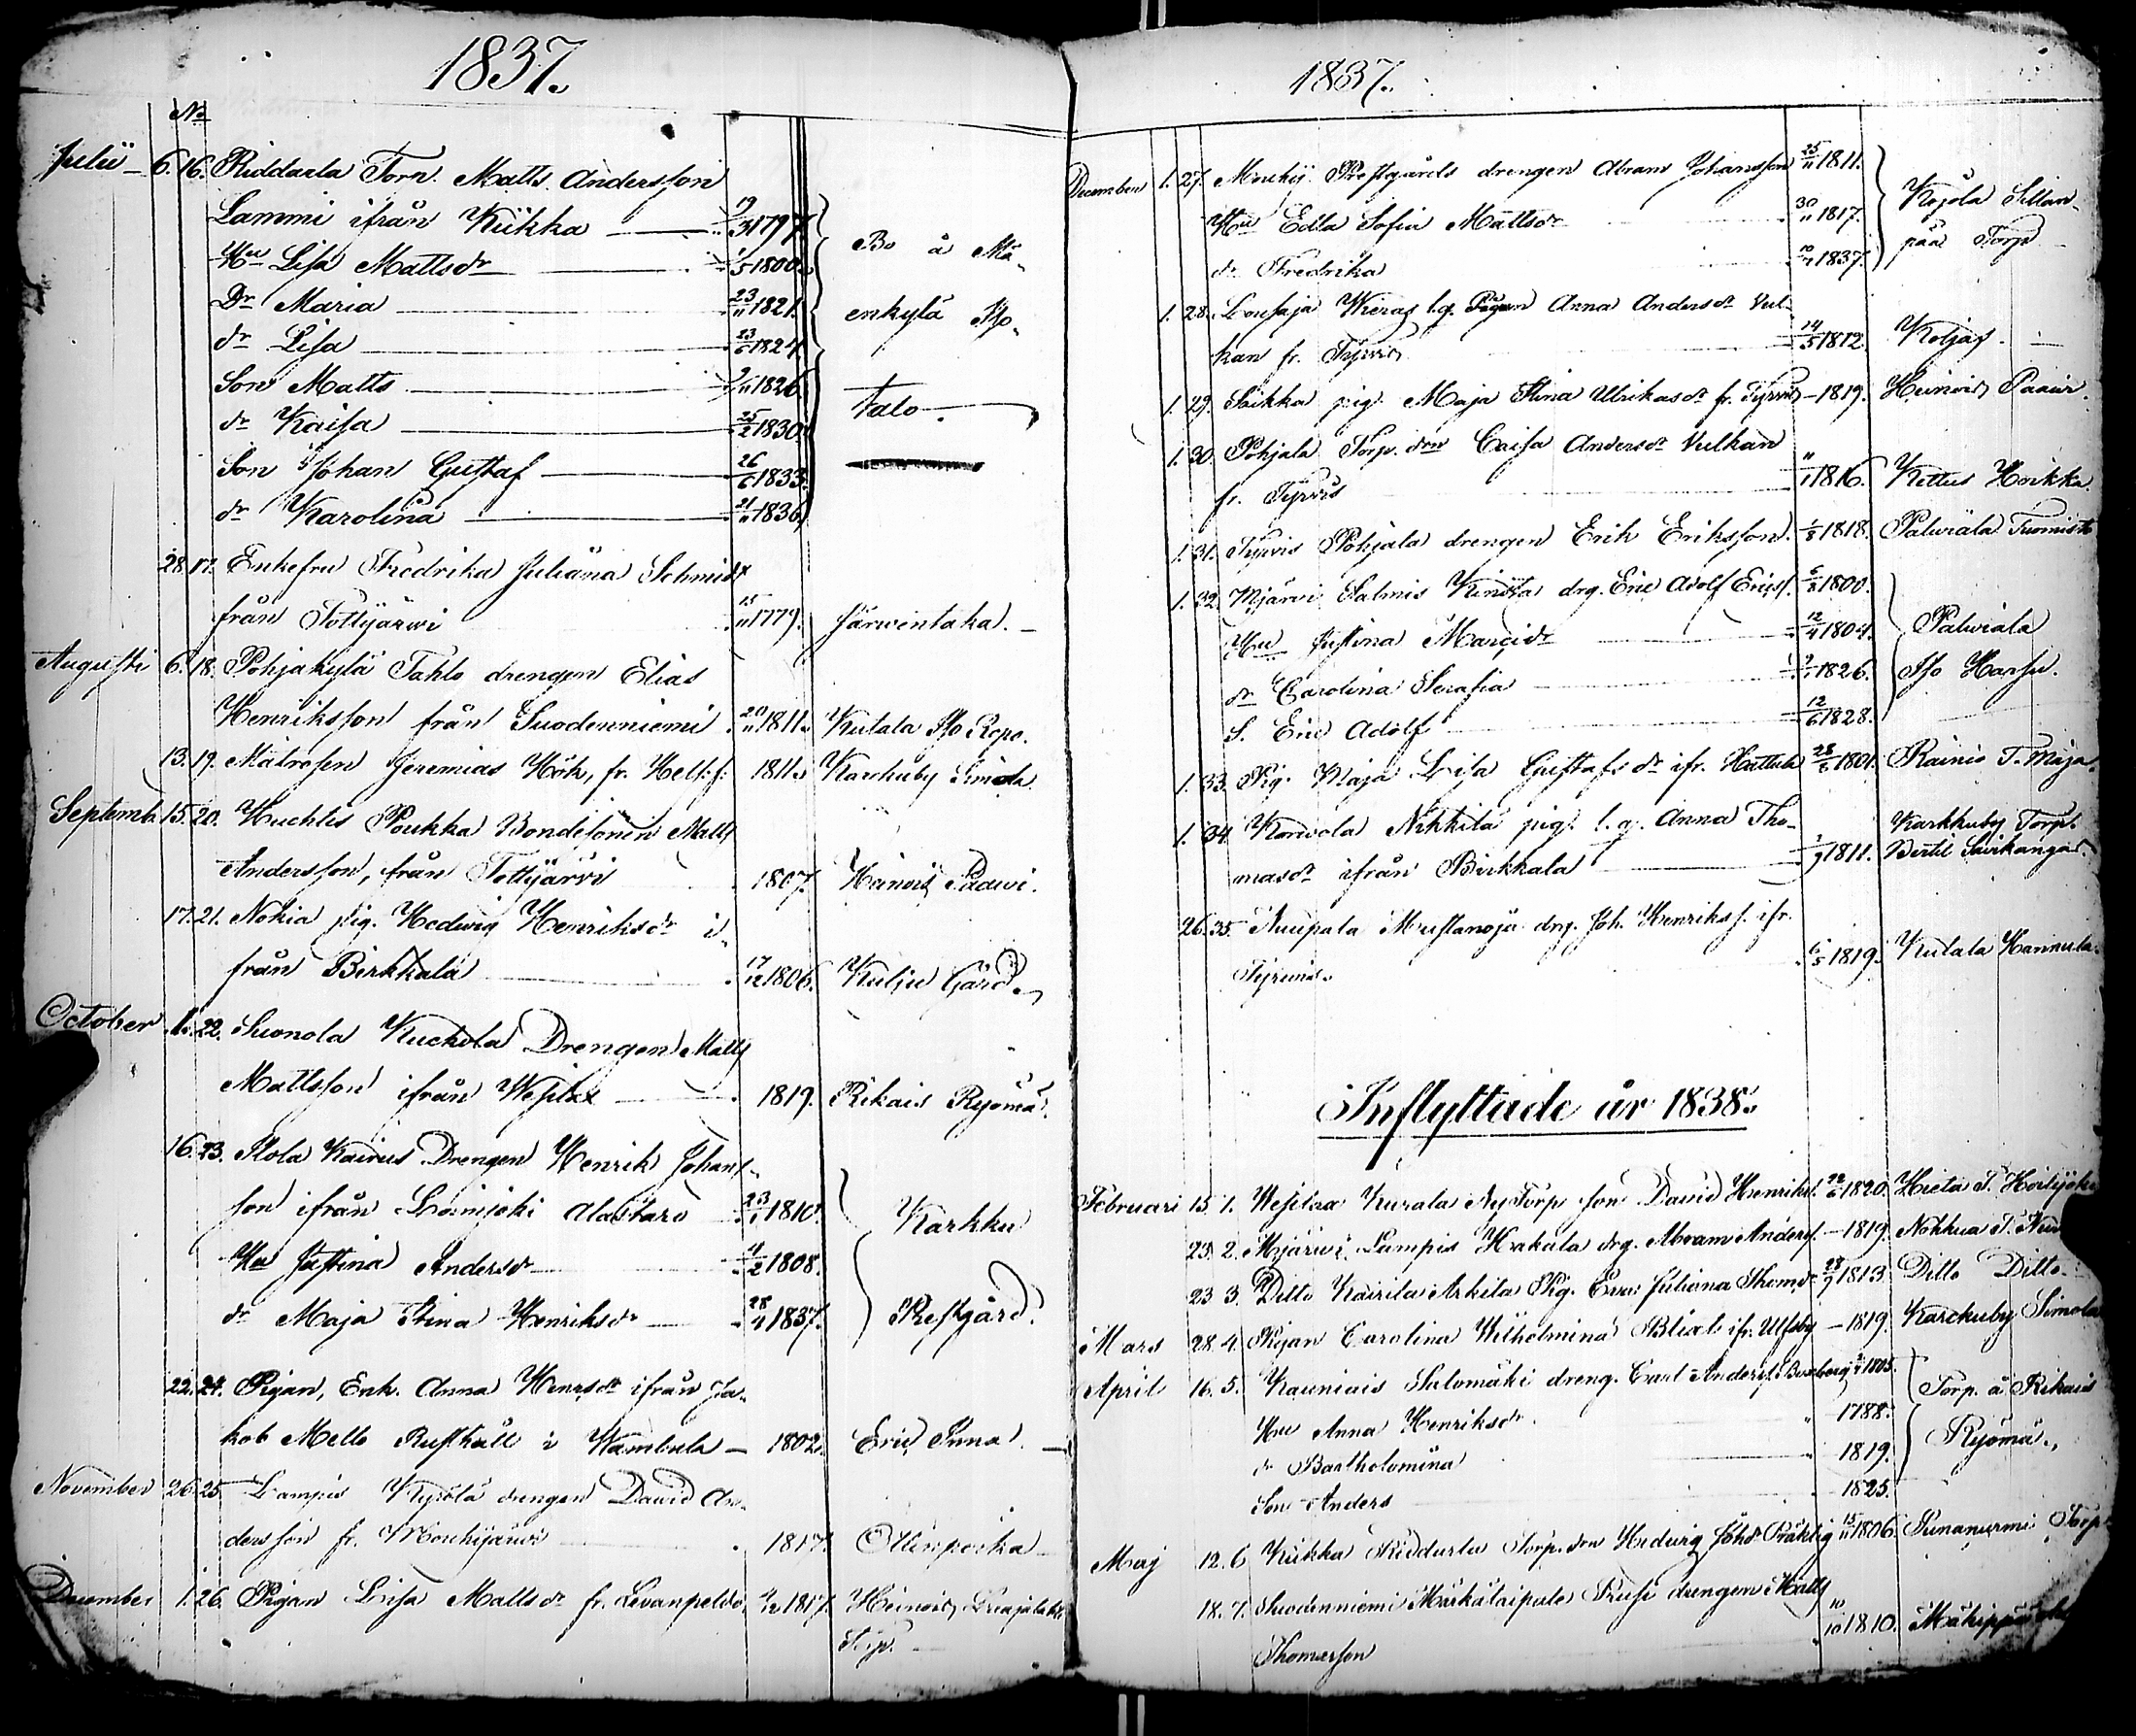 1837.
No
Julii 6. 16. Riddaala Torp. Matts Andersson
Lammi ifrån Kiikka 19/3 1797.
Hu Lisa Mattsdr 1/5 1800. Bo å Mä-
Dr Maria 23/11 1821.
dr Lisa 23/6 1824. enkylä Iso
Son Matts 9/11 1826.
dr Kaisa 25/2 1830. talo.
Son Johan Gustaf 26/6 1833.
dr Karolina 21/11 1836.
28. 17. Enkefru Fredrika Juliana Schmidt
från Tottijärwi 15/11 1779. Järwentaka.
Augusti 6. 18. Pohjakylä Tahlo drengen Elias
Henriksson från Suodenniemi 20/11 1811. Kutala Iso Ropo.
13. 19. Matrosen Jeremias Hök, fr. Helsf: 1811. Karckuby Simola
Septemb. 15. 20. Huchtis Poukka Bondesonen Matts
Andersson, från Tottijärvi 1807. Heinois Paawi.
17. 21. Nokia pig. Hedwig Henriksdr i-
från Birkkala 17/12 1806. Kulju Gård.
October 1. 22. Suonola Kuckola Drengen Matts
Mattsson ifrån Wesilax 1819. Rikais Ryömä.
16. 23. Kairus Drengen Henrik Johans-
son ifrån Loimjoki Alastaro 23/1 1810. Karkku
Hu Justina Andersdr 11/2 1808.
dr Maja Stina Henriksdr 28/4 1837. Prestgård.
22. 24. Pigan, Enk. Anna Henrsdr ifrån Ja-
kob Mello Rusthåll i Wambula 1802. Eric Inna.
November 26. 25. Lampis Kyrölä drengen David An-
dersson fr. Mouhijärwi 1817. Ollinpoika
December 1. 26. Pigan Lisa Mattsdr fr. Levanpeldo 1817. Heinois
Torp.
1837.
December 1. 27. Mouhij. Prestgårds drengen Abram Johansson 25/11 1811.
Hu Edla Sofia Mattsdr 30/11 1817. Kojola Sillan-
dr Fredrika 1837. pää Torp
1. 28. Lousaja Wieras l.q. Pigan Anna Andersdr Vul-
kan fr. Tyrvis 14/5 1812. Koljas.
1. 29. Saikka pig. Maja Stina Ulrikasdr fr. Tyrvis 1819. Heinois Paawi.
1. 30. Pohjala Torp. drn Caisa Andersdr Vulkan
fr. Tyrvis 11/1 1816. Kettus Heikka.
1. 31. Tyrvis Pohjala drengen Erik Eriksson. 1/8 1818. Palwiala Tuomisto
1. 32. Mjärvi Salmis drg. Eric Adolf Ericss. 6/8 1800.
Hu Justina Marcidr 12/4 1804. Palwiala
dr Carolina Serafia 1826. Iso Harju.
S. Eric Adolf 12/6 1828.
1. 33. Pig. Maja Lisa Gustafsdr ifr. Hattula 28/6 1801. Rainio T. Maja.
1. 34. Korwola Nikkilä pig. l.q. Anna Tho- Karkkuby Torp.
masdr ifrån Birkkala 1/9 1811. Bertil
26. 35. Nuupala Mustanoja drg. Joh. Henrikss. ifr.
Tyrwis. 6/5 1819. Kutala Hannula.
Inflyttade år 1838.
Februari 15. 1. Wesilax Kurala Ny Torp son David Henrikss. 22/6 1820. Hieta T.
23. 2. Mjärwi Lampis Hakala drg. Abram Anderss. 1819. Nohkua T.
23. 3. Ditto Kairila Arkila Pig. Eva Juliana Thomdr 28/9 1813. Ditto Ditto.
Mars 28. 4. Pigan Carolina Wilhelmina ifr. Ulfsby 1819. Karckuby Simola
April 16. 5. Kauniais Salomäki dreng. Carl Anderss. 1805. Torp. å Rikais
Hu Anna Henriksdr 1788.
dr Bartholomina 1819. Ryömä.
Son Anders 1825.
Maj 12. 6. Kiikka Riddarla Torp. drn Hedwig Johdr 15/11 1806. Torp
18. 7. Suodenniemi Märkälaipale drengen Matts
Thomasson 10/10 1810. Mäkippä